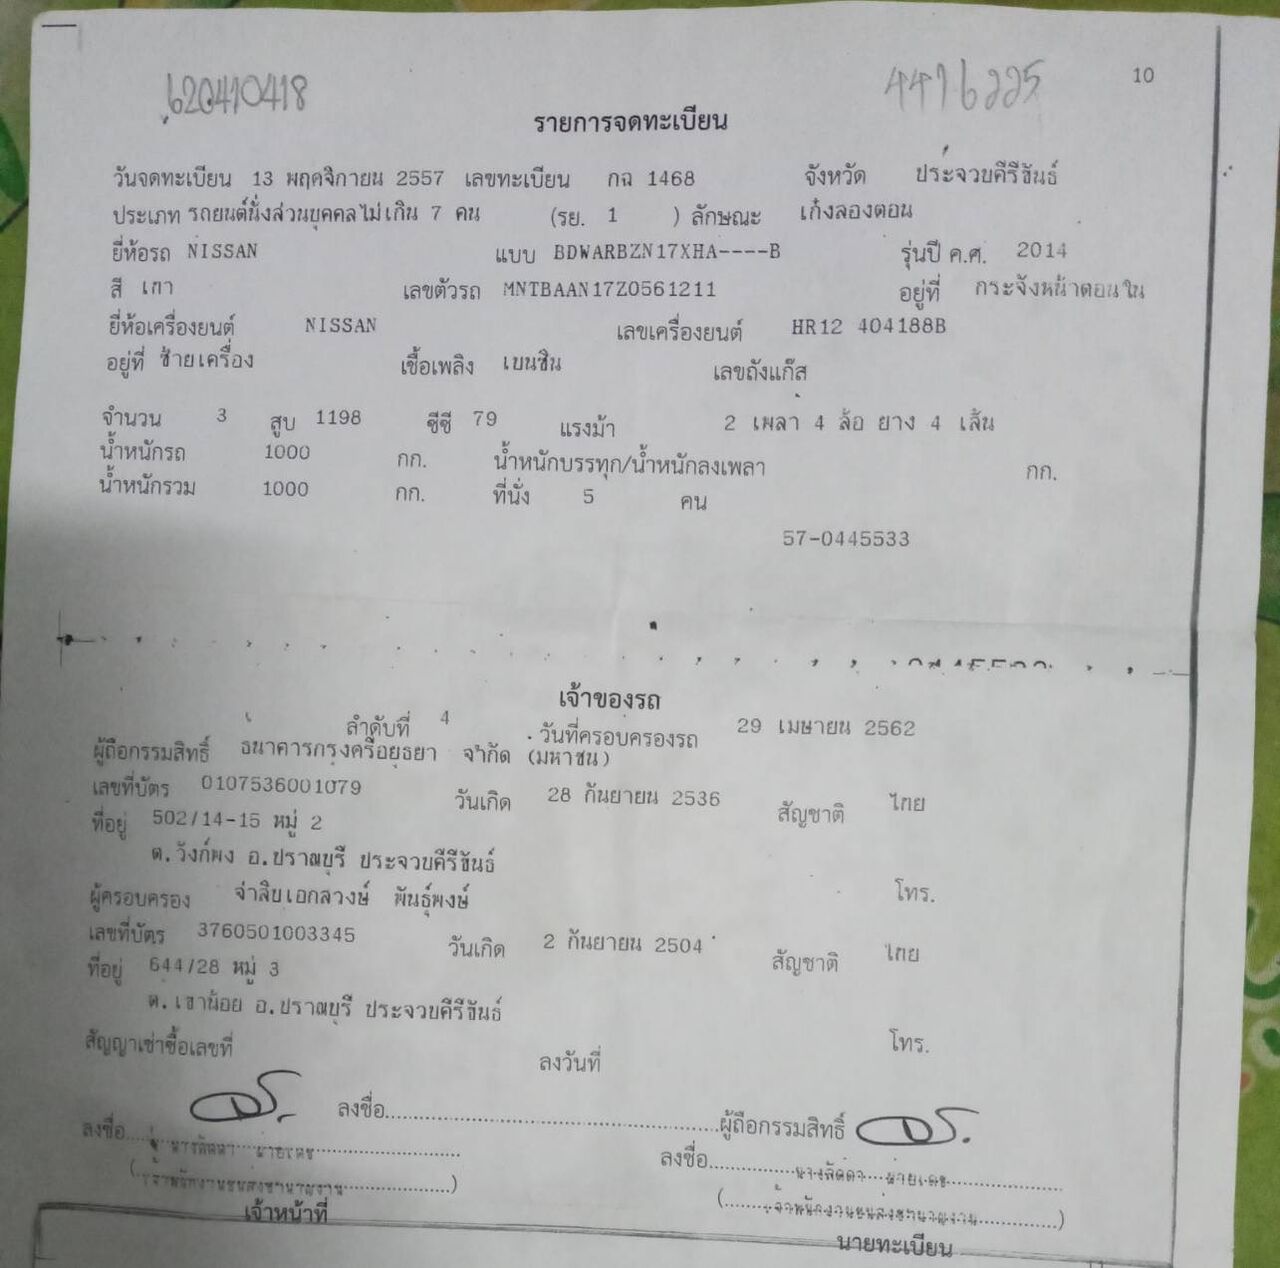 620410418
4476225
10
รายการจดทะเบียน
วันจดทะเบียน 13 พฤศจิกายน 2557 เลขทะเบียน กฉ 1468 จังหวัด ประจวบคีรีขันธ์
ประเภท รถยนต์นั่งส่วนบุคคลไม่เกิน 7 คน (รย. 1 ) ลักษณะ เก๋งสองตอน
ยี่ห้อรถ NISSAN แบบ BDWARBZN17XHA----B รุ่นปี ค.ศ. 2014
สี เทา เลขตัวรถ MNTBAAN17Z0561211 อยู่ที่ กระจังหน้าตอนใน
ยี่ห้อเครื่องยนต์ NISSAN เลขเครื่องยนต์ HR12 404188B
อยู่ที่ ซ้ายเครื่อง เชื้อเพลิง เบนซิน เลขถังแก๊ส
จำนวน 3 สูบ 1198 ซีซี 79 แรงม้า 2 เพลา 4 ล้อ ยาง 4 เส้น
น้ำหนักรถ 1000 กก. น้ำหนักบรรทุก/น้ำหนักลงเพลา กก.
น้ำหนักรวม 1000 กก. ที่นั่ง 5 คน
57-0445533
เจ้าของรถ
ลำดับที่ 4 วันที่ครอบครองรถ 29 เมษายน 2562
ผู้ถือกรรมสิทธิ์ ธนาคารกรุงศรีอยุธยา จำกัด (มหาชน)
เลขที่บัตร 0107536001079 วันเกิด 28 กันยายน 2536 สัญชาติ ไทย
ที่อยู่ 502/14-15 หมู่ 2
ต.วังก์พง อ.ปราณบุรี ประจวบคีรีขันธ์
ผู้ครอบครอง จ่าสิบเอกลวงษ์ พันธุ์พงษ์ โทร.
เลขที่บัตร 3760501003345 วันเกิด 2 กันยายน 2504 สัญชาติ ไทย
ที่อยู่ 644/28 หมู่ 3
ต.เขาน้อย อ.ปราณบุรี ประจวบคีรีขันธ์
สัญญาเช่าซื้อเลขที่ ลงวันที่ โทร.
ลงชื่อ ผู้ถือกรรมสิทธิ์
ลงชื่อ ลงชื่อ นางลัดดา
(เจ้าพนักงานขนส่งชำนาญงาน) (เจ้าพนักงานขนส่งชำนาญงาน)
เจ้าหน้าที่ นายทะเบียน